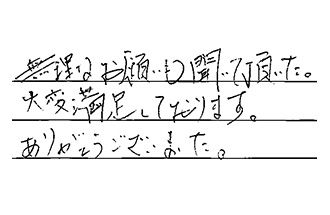 無理なお願いも聞いて頂いた。
大変満足しております。
ありがとうございました。